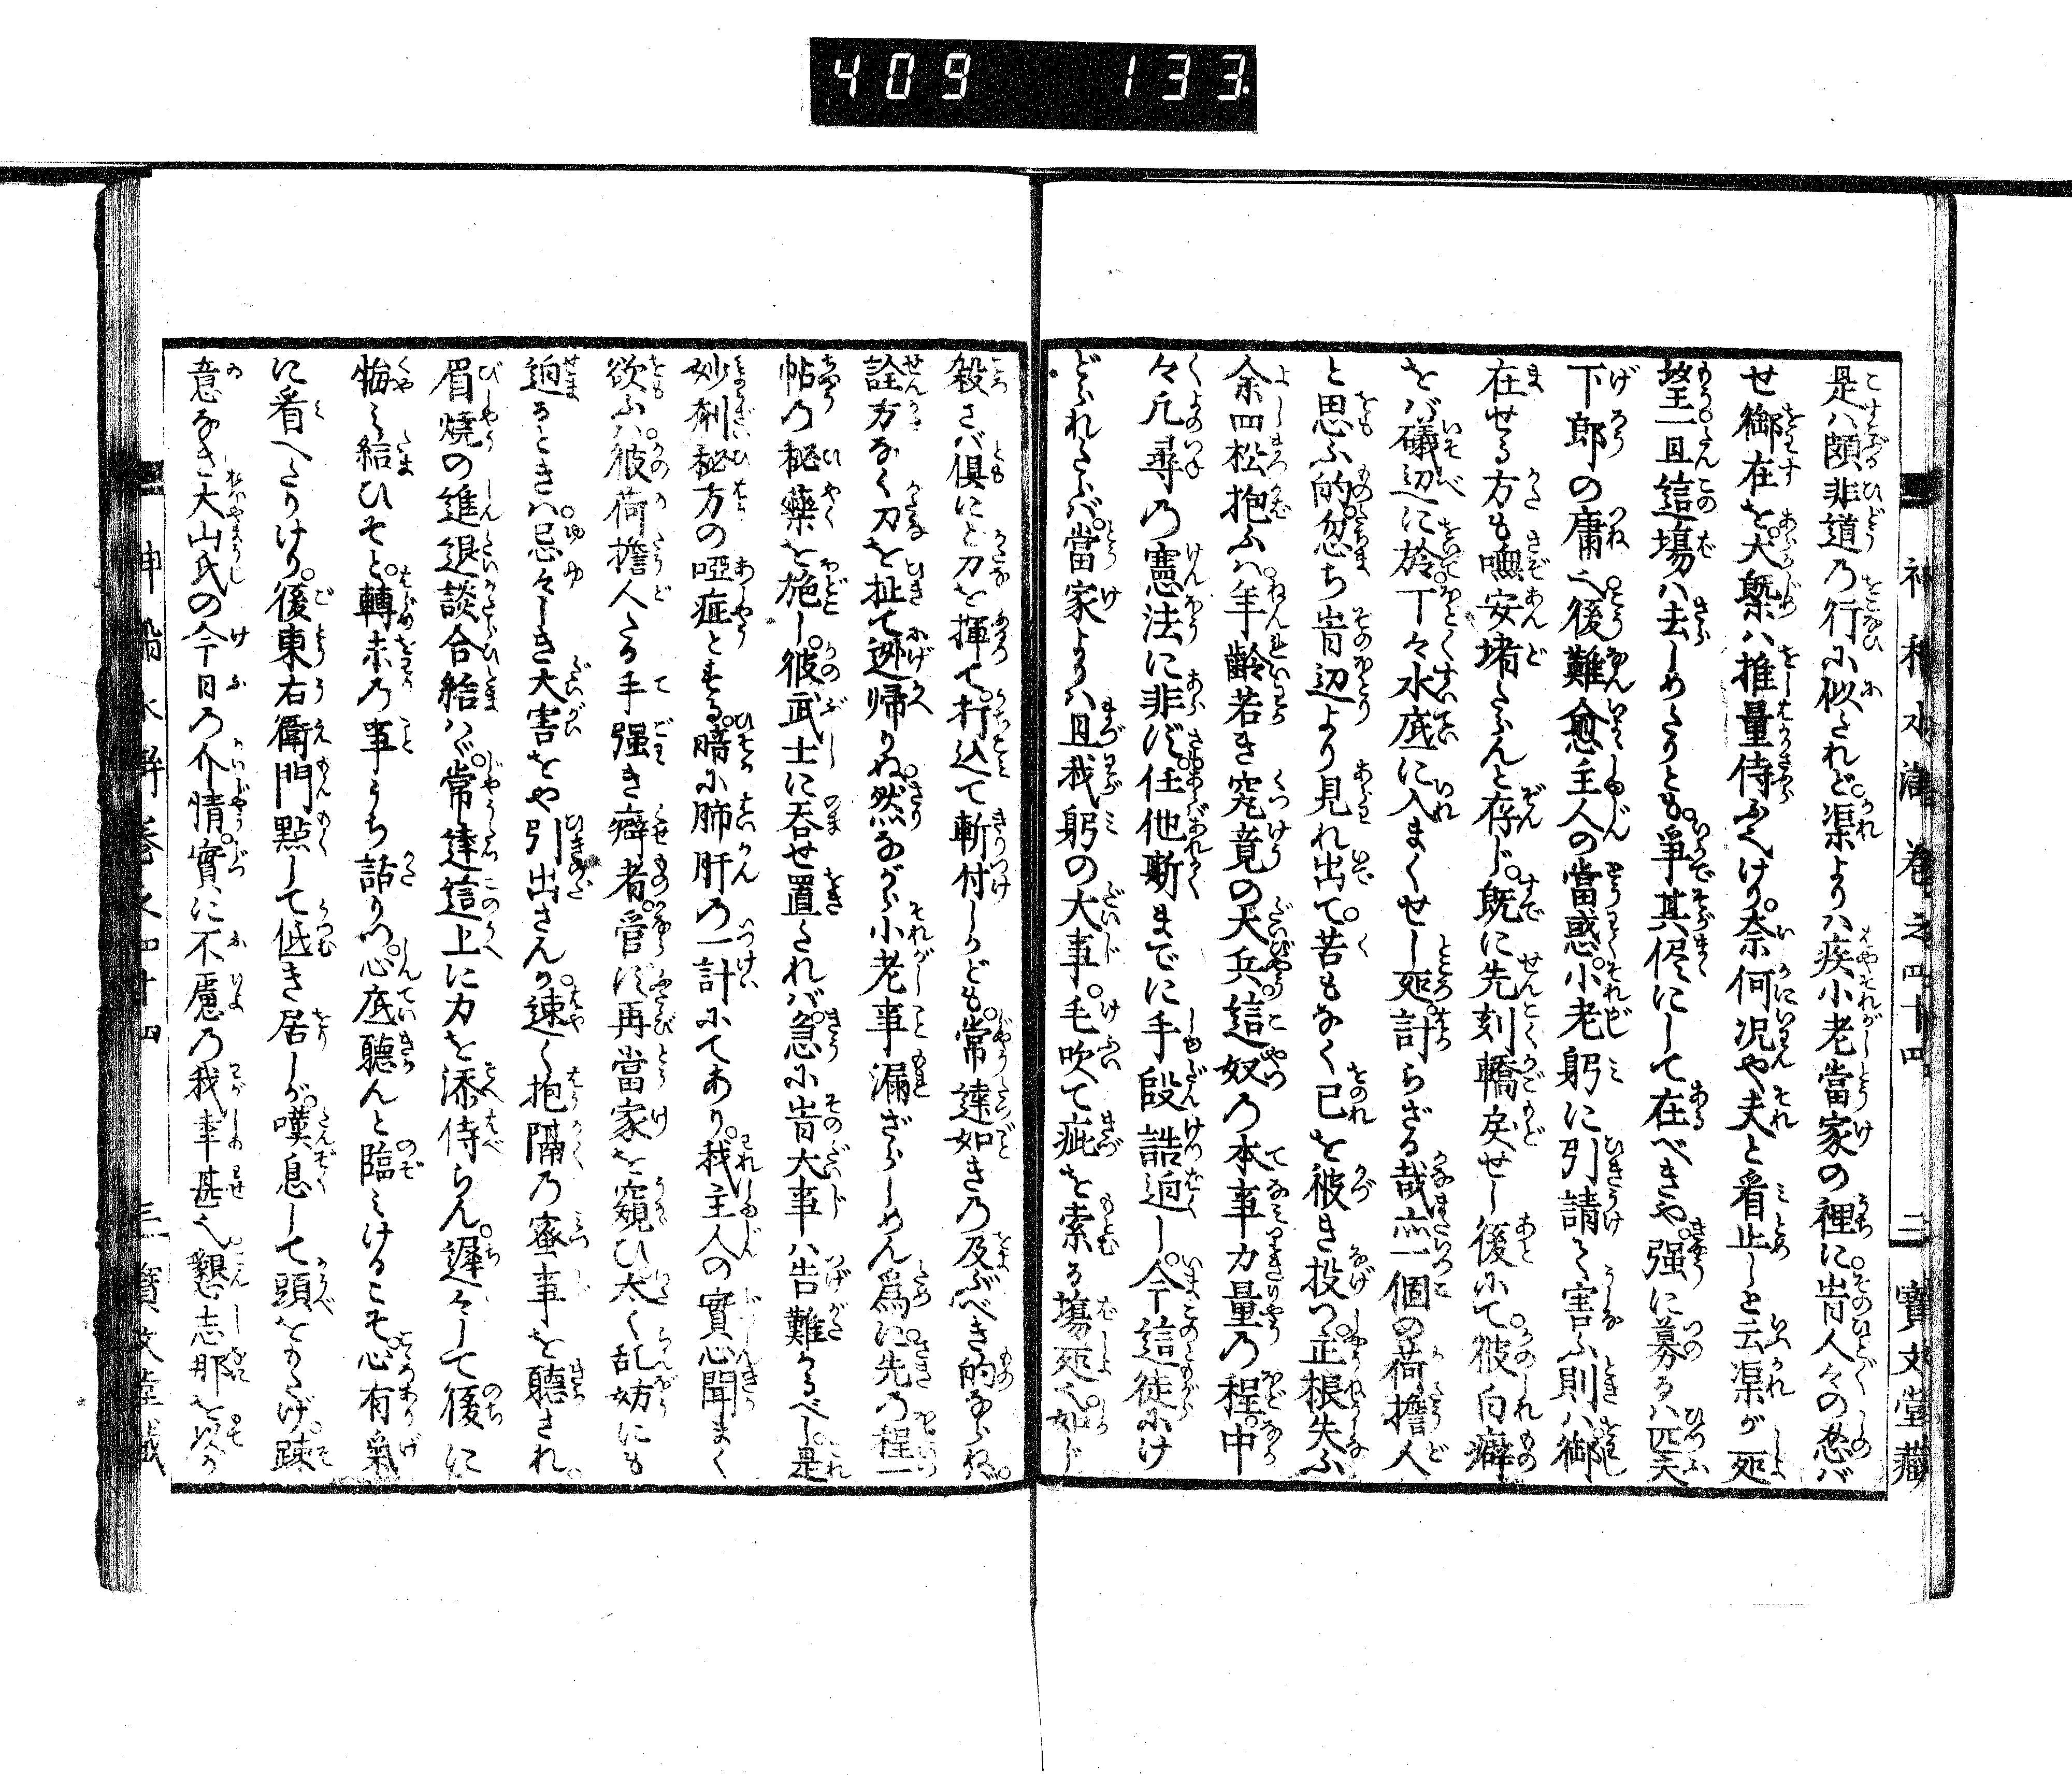 409 133
神稲水滸傳巻之四十四 二 寶文堂藏
是ハ頗非道乃行に似されど。渠よりハ疾小老當家の裡に。肯人々の忍ば
せ御在を。大槩ハ推量侍ふべけり。奈何况や夫と看止しと云渠が処
望。一旦這塲ハ去しめたりとも。爭其侭にして在べきや。强に募るハ匹夫
下郎の庸也。後難愈主人の當惑。小老躬に引請て害ふ則ハ御
在せる方も嘸安堵たらんと存じ。既に先刻轎戻せし後にて。彼白癖
をバ礒辺に於。丁々水底に入まくせし処。計らざる哉。亦一個の荷擔人
と思ふ的。忽ち肯辺より見れ出て。苦もなく已を彼き投つ。正根失ふ
余四松抱ふハ。年齢若き究竟の大兵。這奴乃本事力量乃程。中
々凡尋乃憲法に非ず。任他斯までに手段詰迫し。今這徒にけ
どられたらバ。當家よりハ且我躬の大事。毛吹て疵を索る塲処也。如じ
殺さバ倶にと刀を揮て。打込て斬付しかども。常達如き乃及ぶべき的ならねバ。
詮方なく刀を扯て迯帰りぬ。然ながら小老事漏ざらしめん爲に。先乃程一
帖乃秘藥を施し。彼武士に呑せ置たれバ。急に肯大事ハ告難かるべし。是
妙剤秘方の啞症とする。暗に肺肝乃一計にてあり。我主人の實心聞まく
欲ふハ。彼荷擔人たる手强き癖者。管ず再當家を窺ひ太く乱妨にも
迫るときハ。忌々しき大害をや引出さんか。速く抱隔乃蜜事を聽され。
眉燒の進退談合給はゞ。常達這上に力を添侍らん。遲々して後に
悔み給ひそと。轉末乃事うち話りつ。心底聽んと臨みけるこそ心有氣
に看へたりけり。後東右衛門點して低き居しが。嘆息して頭をもたげ。踈
意なき大山氏の今日乃介情。實に不慮乃我幸甚也。懇志那を以か
神稲水滸傳巻之四十四 三 寶文堂藏